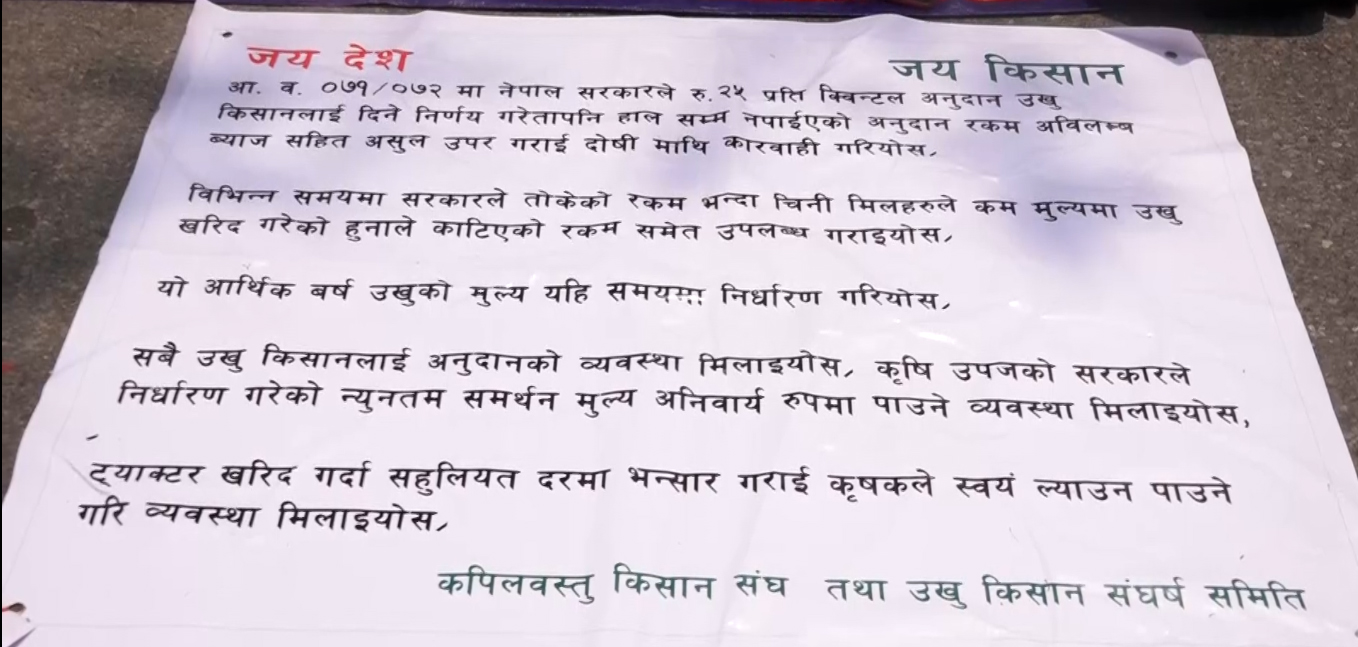 जय देश
जय किसान
आ. व. ०७१/०७२ मा नेपाल सरकारले रु.२५ प्रति क्विन्टल अनुदान उखु
किसानलाई दिने निर्णय गरेतापनि हाल सम्म नपाईएको अनुदान रकम अविलम्ब
ब्याज सहित असुल उपर गराई दोषी माथि कारवाही गरियोस,
विभिन्न समयमा सरकारले तोकेको रकम भन्दा चिनी मिलहरुले कम मुल्यमा उखु
खरिद गरेको हुनाले काटिएको रकम समेत उपलब्ध गराइयोस,
यो आर्थिक बर्ष उखुको मुल्य यहि समयमा निर्धारण गरियोस,
सबै उखु किसानलाई अनुदानको व्यवस्था मिलाइयोस, कृषि उपजको सरकारले
निर्धारण गरेको न्युनतम समर्थन मुल्य अनिवार्य रुपमा पाउने व्यवस्था मिलाइयोस,
ट्याक्टर खरिद गर्दा सहुलियत दरमा भन्सार गराई कृषकले स्वयं ल्याउन पाउने
गरि व्यवस्था मिलाइयोस,
कपिलवस्तु किसान संघ तथा उखु किसान संघर्ष समिति